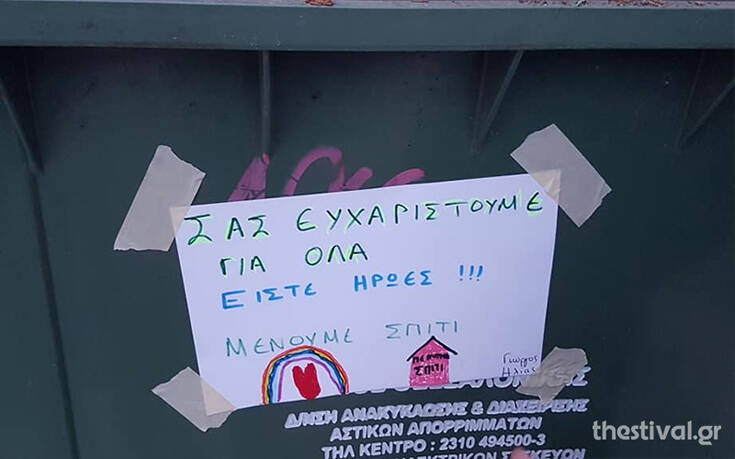 ΣΑΣ ΕΥΧΑΡΙΣΤΟΥΜΕ
ΓΙΑ ΟΛΑ
ΕΙΣΤΕ ΗΡΩΕΣ !!!
ΜΕΝΟΥΜΕ ΣΠΙΤΙ
ΣΠΙΤΙ
Γιώργος
Ηλίας
Δ/ΝΣΗ ΑΝΑΚΥΚΛΩΣΗΣ & ΔΙΑΧΕΙΡΙΣΗΣ
ΑΣΤΙΚΩΝ ΑΠΟΡΡΙΜΜΑΤΩΝ
ΤΗΛ ΚΕΝΤΡΟ : 2310 494500-3
thestival.gr